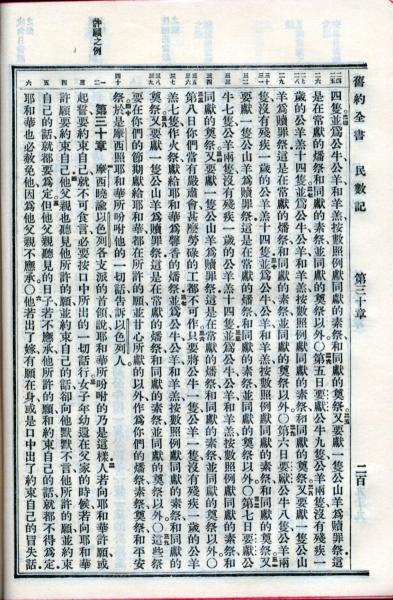 舊約全書 民數記 第三十章 二百
四隻並爲公牛公羊和羊羔按數照例獻同獻的素祭和同獻的奠祭又要獻一隻公山羊爲贖罪祭這
是在常獻的燔祭和同獻的素祭並同獻的奠祭以外〇第五日要獻公牛九隻公羊兩隻沒有殘疾一
歲的公羊羔十四隻並爲公牛公羊和羊羔按數照例獻同獻的素祭和同獻的奠祭又要獻一隻公山
羊爲贖罪祭這是在常獻的燔祭和同獻的素祭並同獻的奠祭以外〇第六日要獻公牛八隻公羊兩
隻沒有殘疾一歲的公羊羔十四隻並爲公牛公羊和羊羔按數照例獻同獻的素祭和同獻的奠祭又
要獻一隻公山羊爲贖罪祭這是在常獻的燔祭和同獻的素祭並同獻的奠祭以外〇第七日要獻公
牛七隻公羊兩隻沒有殘疾一歲的公羊羔十四隻並爲公牛公羊和羊羔按數照例獻同獻的素祭和
同獻的奠祭又要獻一隻公山羊爲贖罪祭這是在常獻的燔祭和同獻的素祭並同獻的奠祭以外〇
第八日你們當有嚴肅會甚麼勞碌的工都不可作只要將公牛一隻公羊一隻沒有殘疾一歲的公羊
羔七隻作火祭獻給耶和華爲馨香的燔祭並爲公牛公羊和羊羔按數照例獻同獻的素祭和同獻的
奠祭又要獻一隻公山羊爲贖罪祭這是在常獻的燔祭和同獻的素祭並同獻的奠祭以外〇這些祭
要在你們的節期獻給耶和華都在所許的願並甘心所獻的以外作爲你們的燔祭素祭奠祭和平安
祭於是摩西照耶和華所吩咐他的一切話告訴以色列人
許願之例
第三十章 摩西曉諭以色列各支派的首領說耶和華所吩咐的乃是這樣人若向耶和華許願或
起誓要約束自己就不可食言必要按口中所出的一切話行女子年幼還在父家的時候若向耶和華
許願要約束自己他父親也聽見他所許的願並約束自己的話卻向他默默不言他所許的願並約束
自己的話就都要爲定但他父親聽見的日子若不應承他所許的願和約束自己的話就都不得爲定
耶和華也必赦免他因爲他父親不應承〇他若出了嫁有願在身或是口中出了約束自己的冒失話